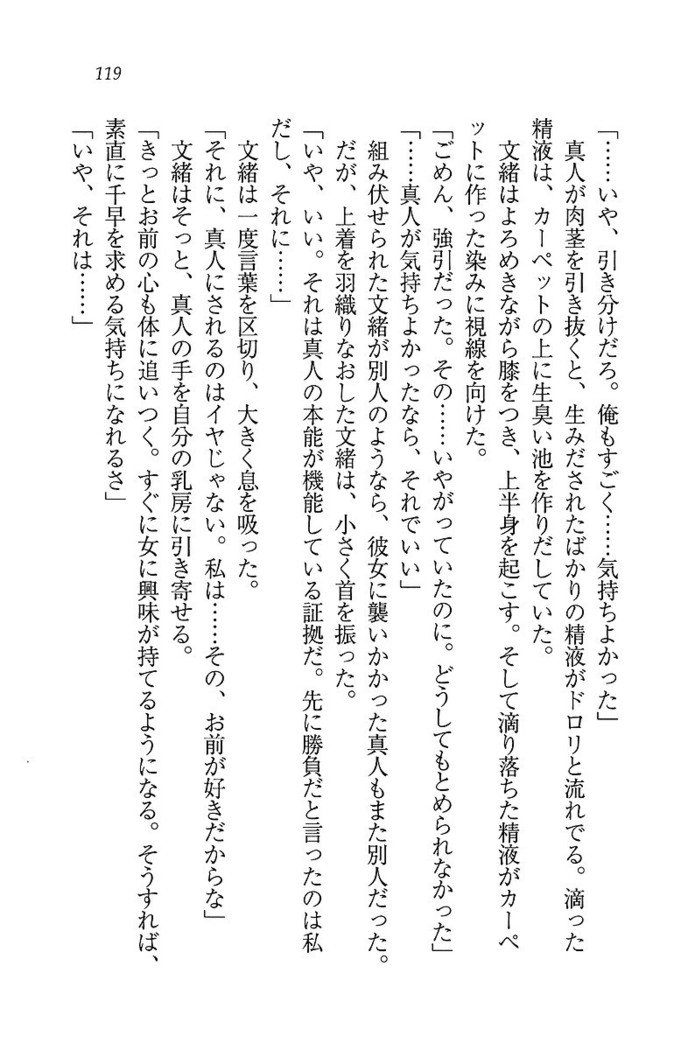 119
「……いや、引き分けだろ。俺もすごく……気持ちよかった」
真人が肉茎を引き抜くと、生みだされたばかりの精液がドロリと流れでる。滴った
精液は、カーペットの上に生臭い池を作りだしていた。
文緒はよろめきながら膝をつき、上半身を起こす。そして滴り落ちた精液がカーペ
ットに作った染みに視線を向けた。
「ごめん、強引だった。その……いやがっていたのに。どうしてもとめられなかった」
「……真人が気持ちよかったなら、それでいい」
組み伏せられた文緒が別人のようなら、彼女に襲いかかった真人もまた別人だった。
だが、上着を羽織りなおした文緒は、小さく首を振った。
「いや、いい。それは真人の本能が機能している証拠だ。先に勝負だと言ったのは私
だし、それに……」
文緒は一度言葉を区切り、大きく息を吸った。
「それに、真人にされるのはイヤじゃない。私は……その、お前が好きだからな」
文緒はそっと、真人の手を自分の乳房に引き寄せる。
「きっとお前の心も体に追いつく。すぐに女に興味が持てるようになる。そうすれば、
素直に千早を求める気持ちになれるさ」
「いや、それは……」